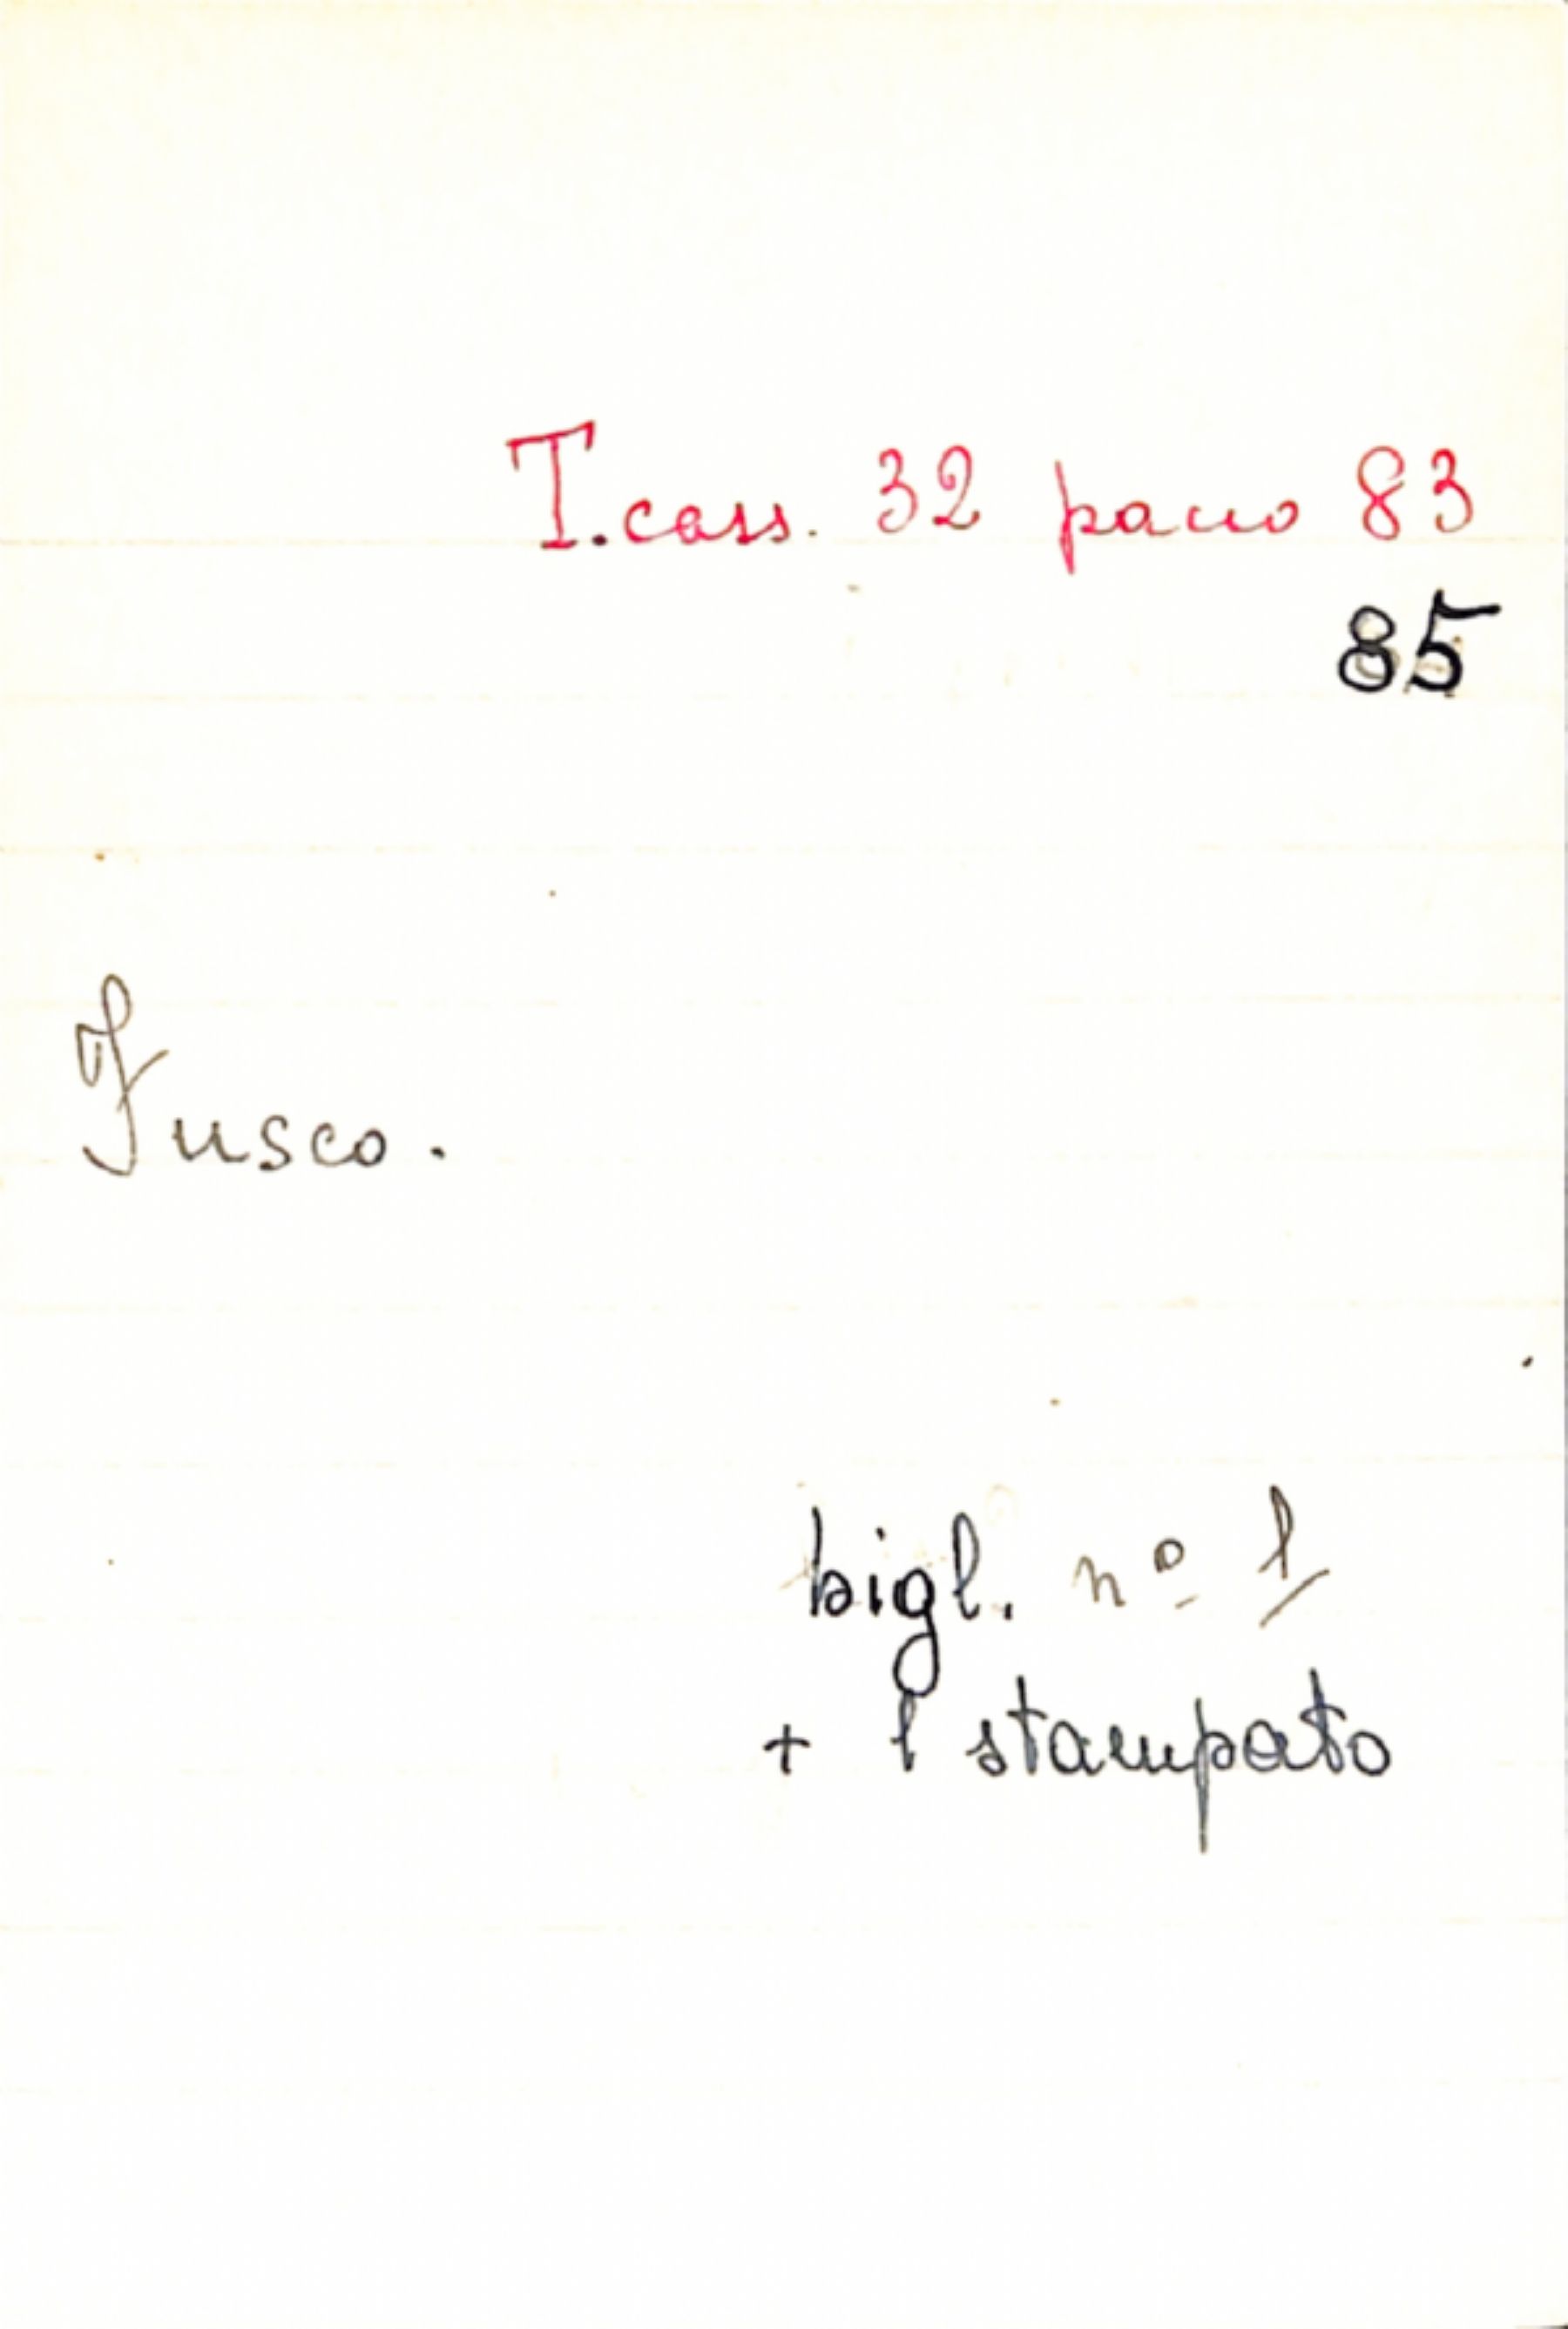 T. cass. 32 pacco 83
85
Fusco.
bigl. nº 1
+ 1 stampato